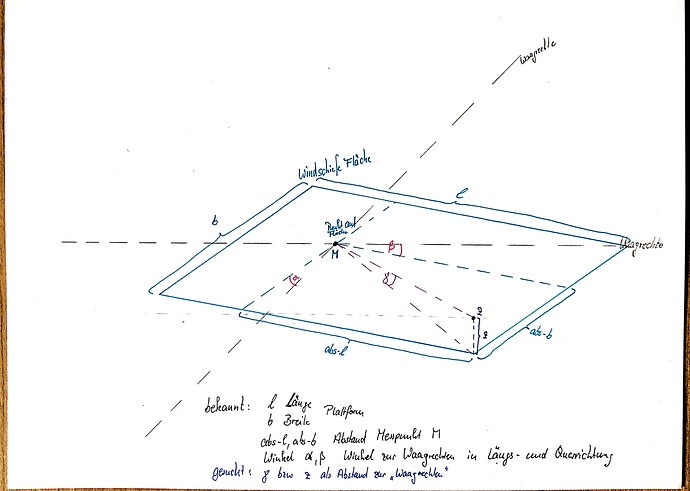 Waagrechte
Windschiefe Fläche
l
b
Punkt auf
Fläche
M
β
Waagrechte
α
γ
z
z
abs-b
abs-l
bekannt: l Länge Plattform
b Breite
abs-l, abs-b Abstand Messpunkt M
Winkel α, β Winkel zur Waagrechten in Längs- und Querrichtung
gesucht: γ bzw z als Abstand zur „Waagrechten"